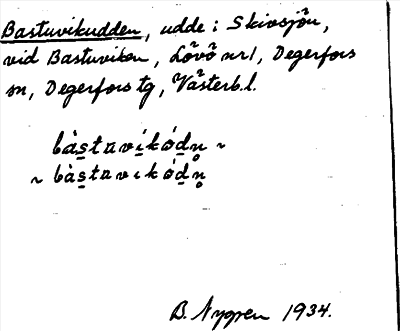 Bastuvikudden, udde i Skivsjön,
vid Bastuviken, Lövö nr 1, Degerfors
sn, Degerfors tg, Västerb.l.
bàs̲tav̲i̲kód̲n̥ ~
~ bàs̲tav̲i̲kód̲n̥
B. Nygren 1934.